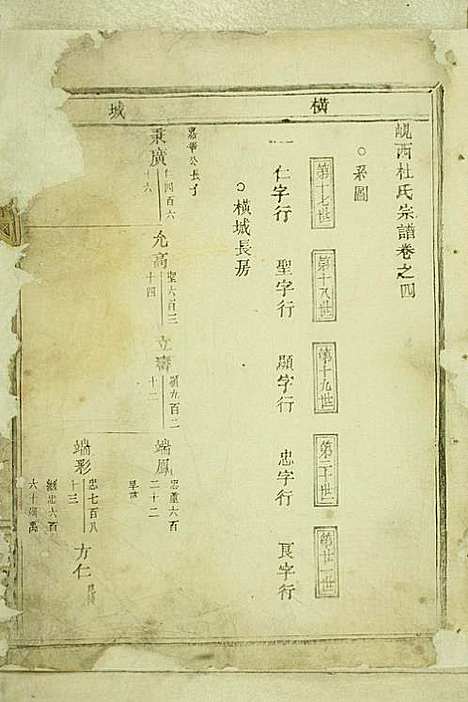 橫城
峴西杜氏宗譜卷之四
○系圖
第十七世 第十八世 第十九世 第二十世 第廿一世
仁字行 聖字行 顯字行 忠字行 良字行
○橫城長房
嘉會公長子
秉廣 仁四百六 十六
允高 聖六百三 十四
立壽 顯九百二 十二
端鳳 忠重六百 二十二
端彩 忠七百八 十三
六百
六十
方仁